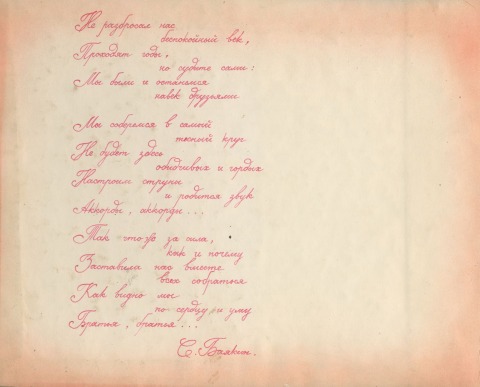 Не разбросал нас
беспокойный век,
Проходят годы,
но судите сами:
Мы были и останемся
навек друзьями
Мы соберемся в самый
тесный круг
Не будет здесь
обидчивых и гордых
Настроим струны
и родится звук
Аккорды, аккорды...
Так что же за сила,
как и почему
Заставила нас вместе
всех собраться
Как видно мы
по сердцу и уму
Братья, братья...
С.